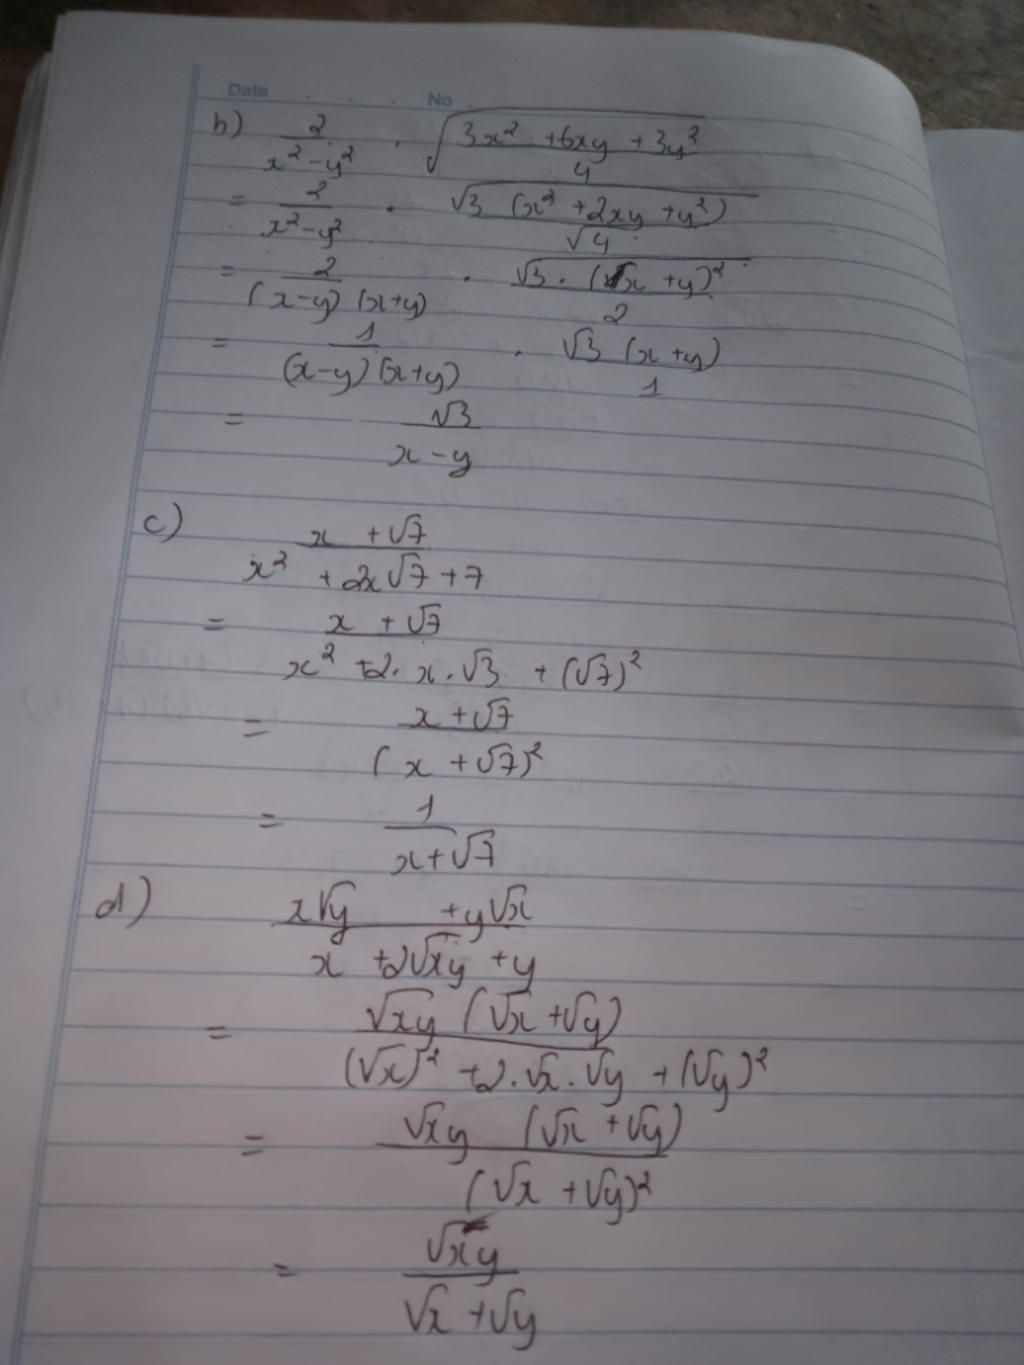 Date No
b) 2/(x² - y²) · √((3x² + 6xy + 3y²)/4)
= 2/(x² - y²) · √(3 (x² + 2xy + y²))/√4
= 2/((x-y)(x+y)) · √(3 · (x + y)²)/2
= 1/((x-y)(x+y)) · √3 (x + y)/1
= √3/(x - y)
c) (x + √7)/(x² + 2x√7 + 7)
= (x + √7)/(x² + 2 · x · √3 + (√7)²)
= (x + √7)/(x + √7)²
= 1/(x + √7)
d) (x√y + y√x)/(x + 2√xy + y)
= √xy (√x + √y)/((√x)² + 2 · √x · √y + (√y)²)
= √xy (√x + √y)/(√x + √y)²
= √xy/(√x + √y)